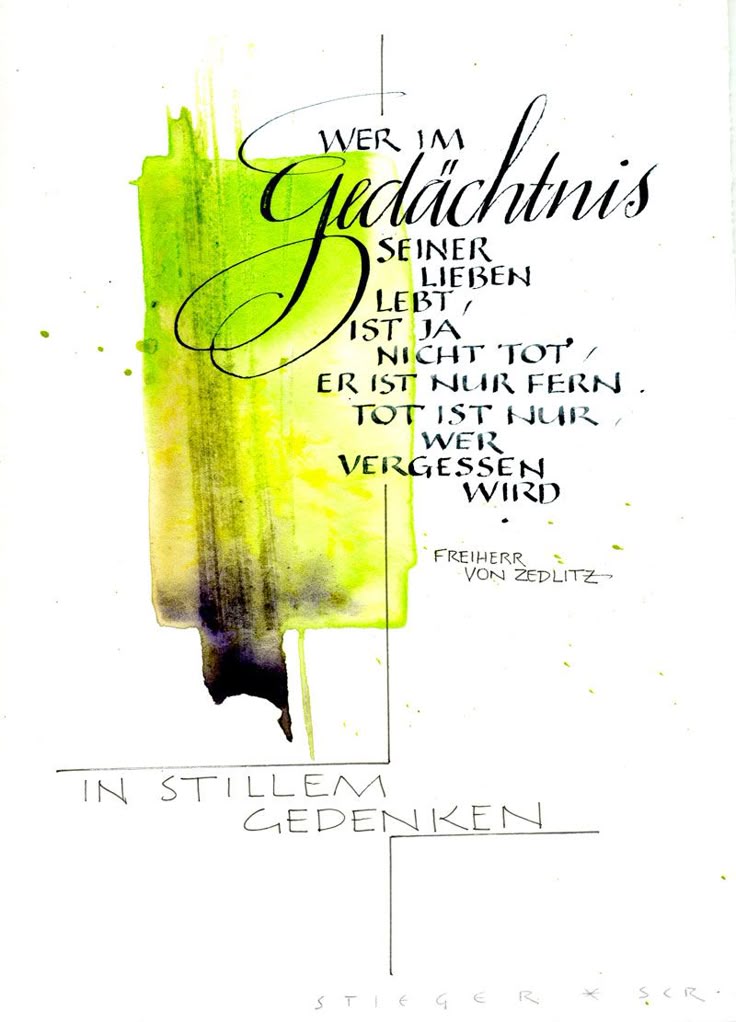 WER IM
Gedächtnis
SEINER
LIEBEN
LEBT,
IST JA
NICHT TOT,
ER IST NUR FERN.
TOT IST NUR,
WER
VERGESSEN
WIRD
.
FREIHERR
VON ZEDLITZ
IN STILLEM
GEDENKEN
STIEGER * SCR.